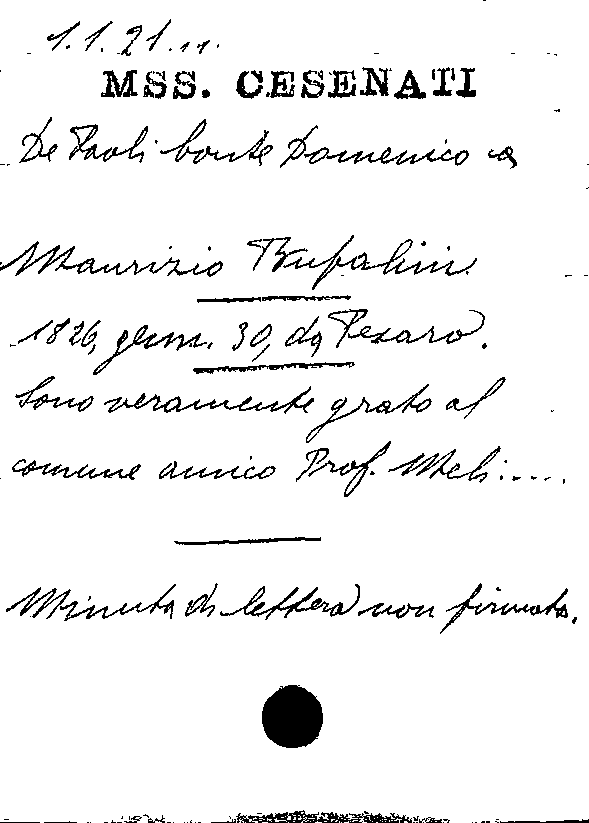 1.1.21...
MSS. CESENATI
De Paoli conte Domenico a
Maurizio Bufalini
1826, genn. 30, da Pesaro.
Sono veramente grato al
comune amico Prof. Meli.....
Minuta di lettera non firmata.